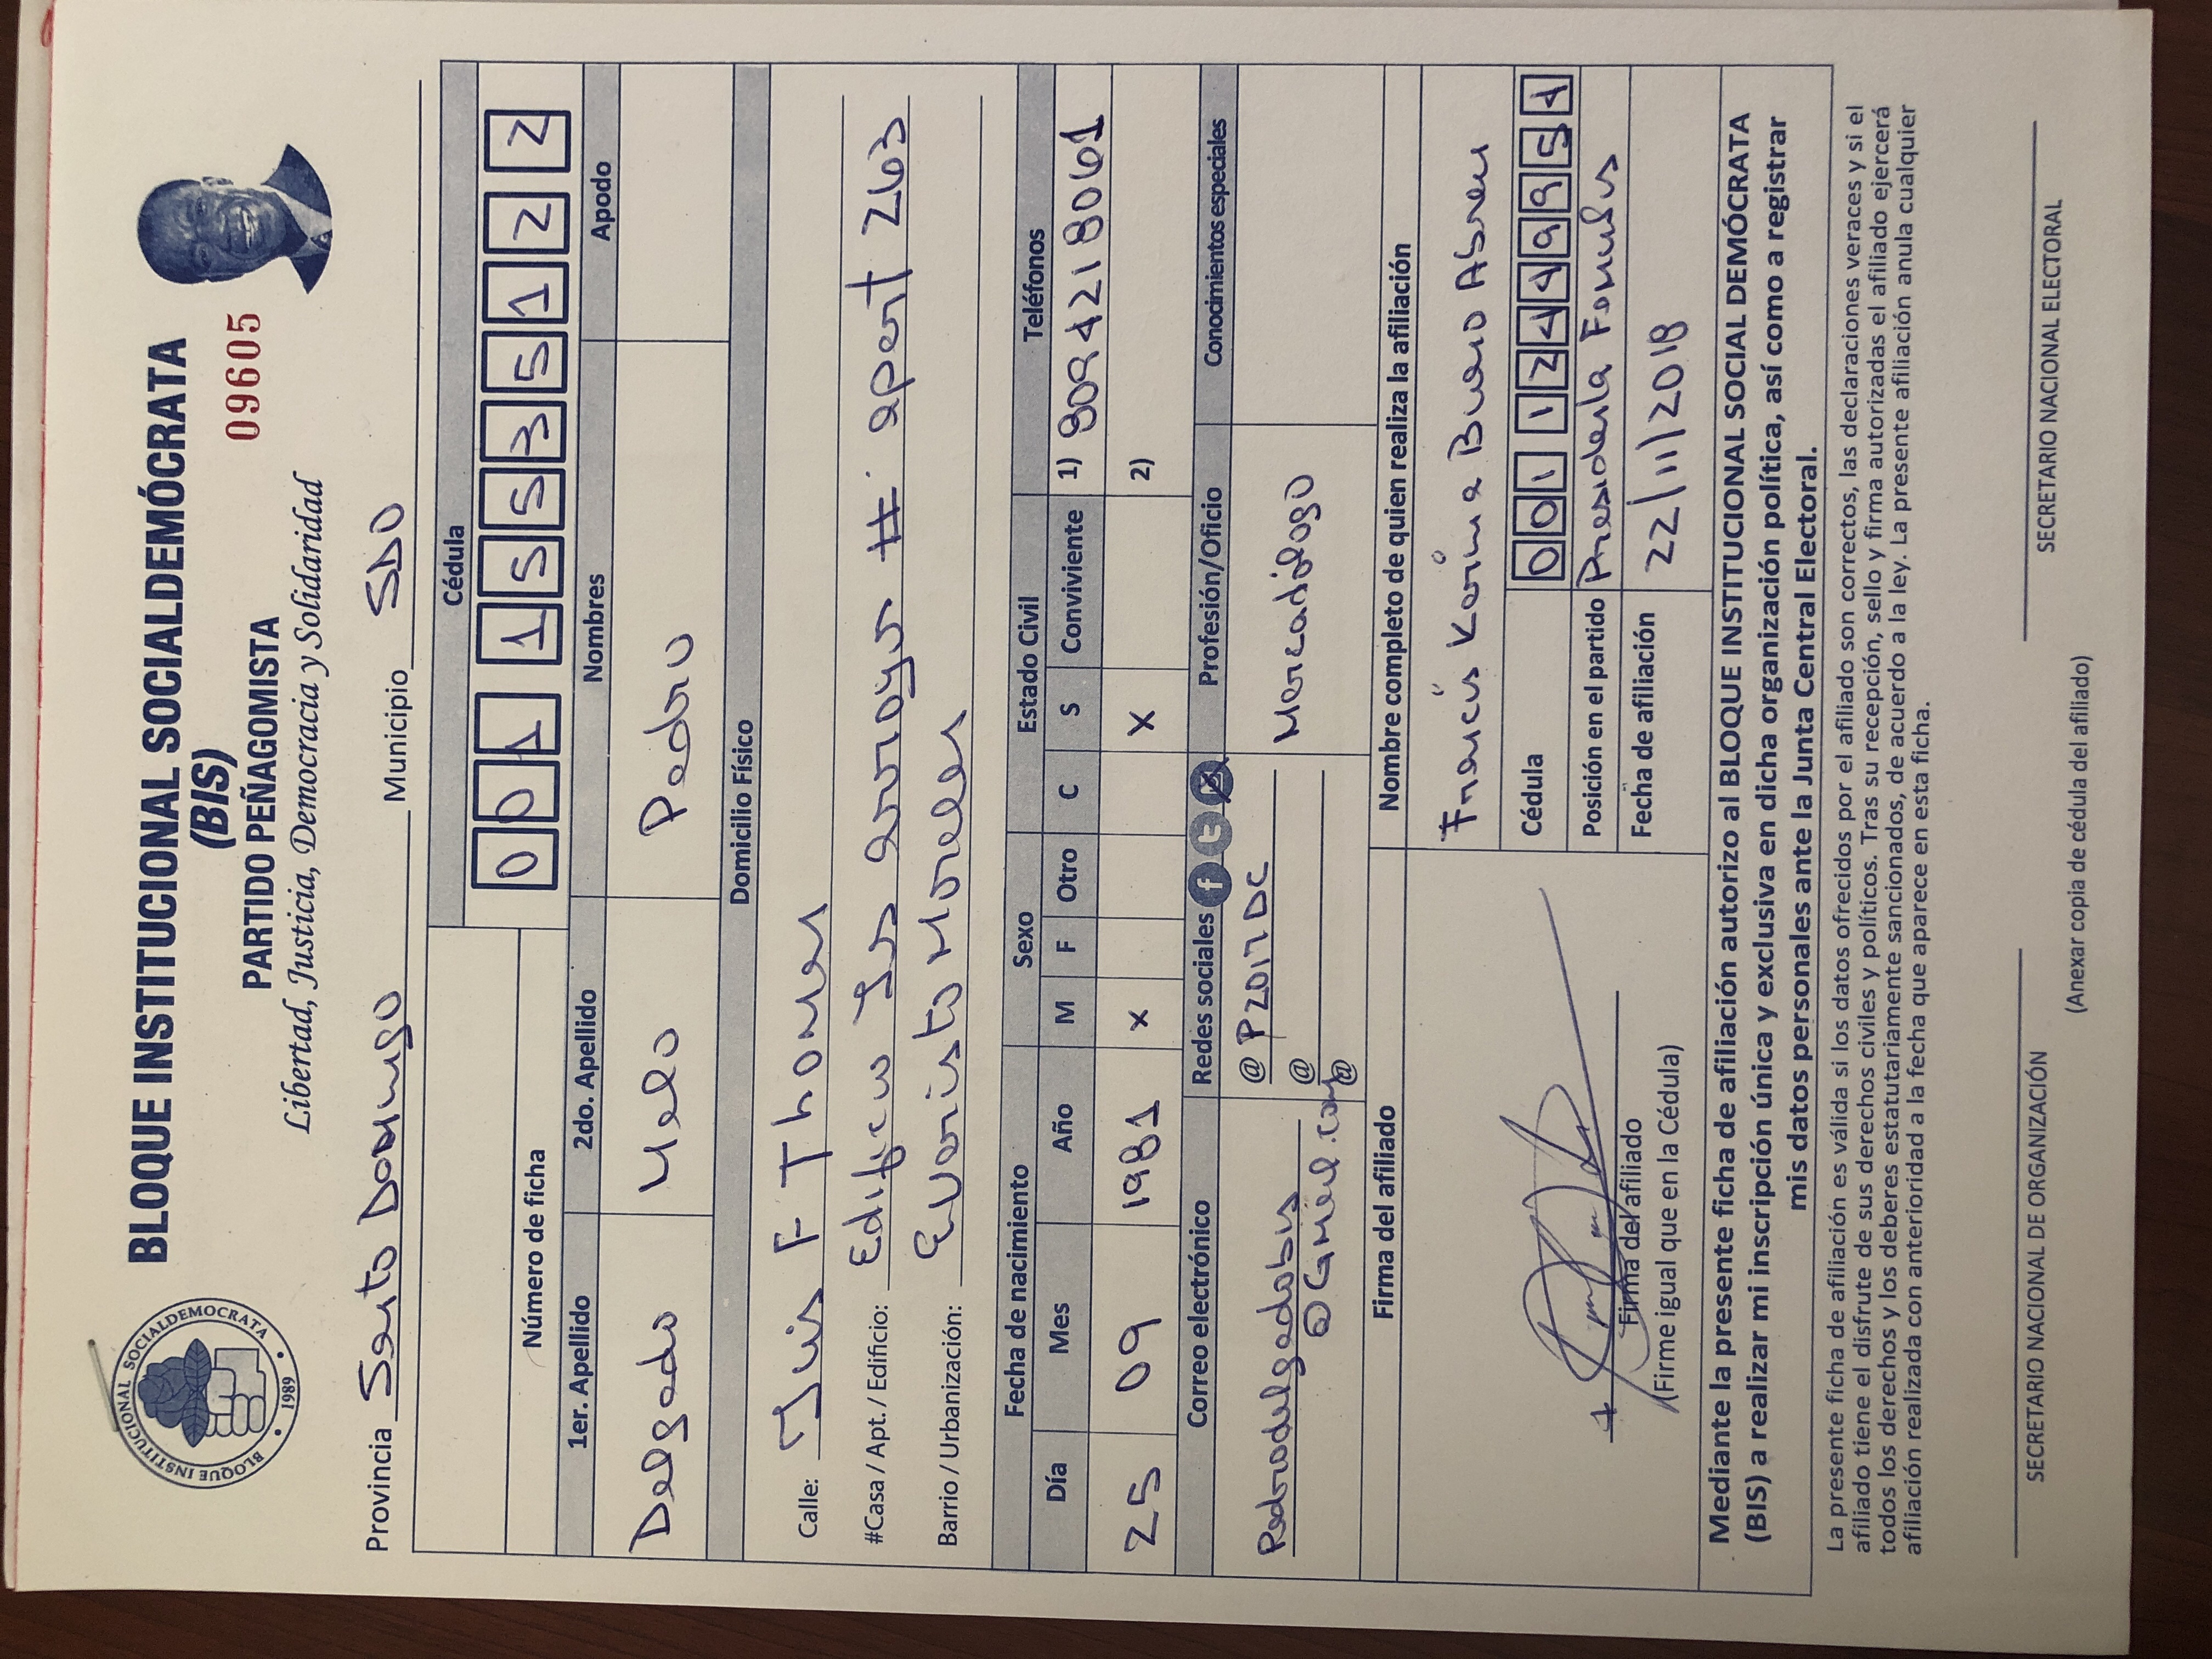 BLOQUE INSTITUCIONAL SOCIALDEMOCRATA
1989
BLOQUE INSTITUCIONAL SOCIALDEMÓCRATA
(BIS)
PARTIDO PEÑAGOMISTA
09605
Libertad, Justicia, Democracia y Solidaridad
Provincia Santo Domingo Municipio SDO
Cédula
0 0 1 1 5 5 3 5 1 2 2
Número de ficha
1er. Apellido 2do. Apellido Nombres Apodo
Delgado Melo Pedro
Domicilio Físico
Calle: Luis F Thomen
#Casa / Apt. / Edificio: Edificio Los arroyos # apart 263
Barrio / Urbanización: Evaristo Morales
Fecha de nacimiento Sexo Estado Civil Teléfonos
Día Mes Año M F Otro C S Conviviente 1) 8094218061
25 09 1981 x X 2)
Correo electrónico Redes sociales f t Profesión/Oficio Conocimientos especiales
Pedrodelgadobis @ P2017DC Mercadologo
@Gmail.com @
@
Firma del afiliado Nombre completo de quien realiza la afiliación
Francis Karina Bueno Abreu
Cédula 0 0 1 1 2 4 4 9 9 5 1
Posición en el partido Presidenta
Fecha de afiliación 22/11/2018
Firma del afiliado
(Firme igual que en la Cédula)
Mediante la presente ficha de afiliación autorizo al BLOQUE INSTITUCIONAL SOCIAL DEMÓCRATA
(BIS) a realizar mi inscripción única y exclusiva en dicha organización política, así como a registrar
mis datos personales ante la Junta Central Electoral.
La presente ficha de afiliación es válida si los datos ofrecidos por el afiliado son correctos, las declaraciones veraces y si el
afiliado tiene el disfrute de sus derechos civiles y políticos. Tras su recepción, sello y firma autorizadas el afiliado ejercerá
todos los derechos y los deberes estatutariamente sancionados, de acuerdo a la ley. La presente afiliación anula cualquier
afiliación realizada con anterioridad a la fecha que aparece en esta ficha.
SECRETARIO NACIONAL DE ORGANIZACIÓN SECRETARIO NACIONAL ELECTORAL
(Anexar copia de cédula del afiliado)